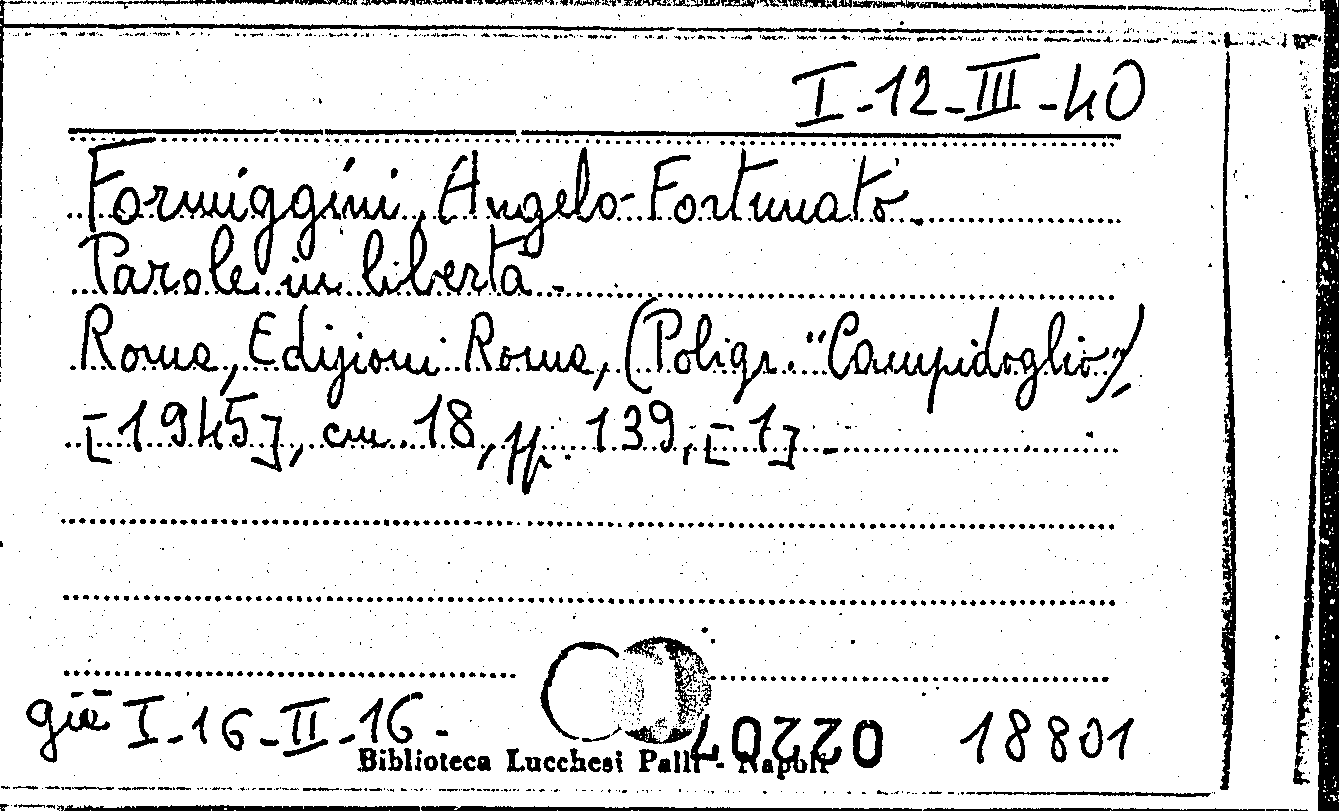 I-12-III-40
Formiggini, Angelo-Fortunato.
Parole in libertà.
Roma, Edizioni Roma, (Poligr. "Campidoglio"),
[1945], cm 18, pp. 139, [1].
già I-16-II-16.
18801
Biblioteca Lucchesi Palli - Napoli